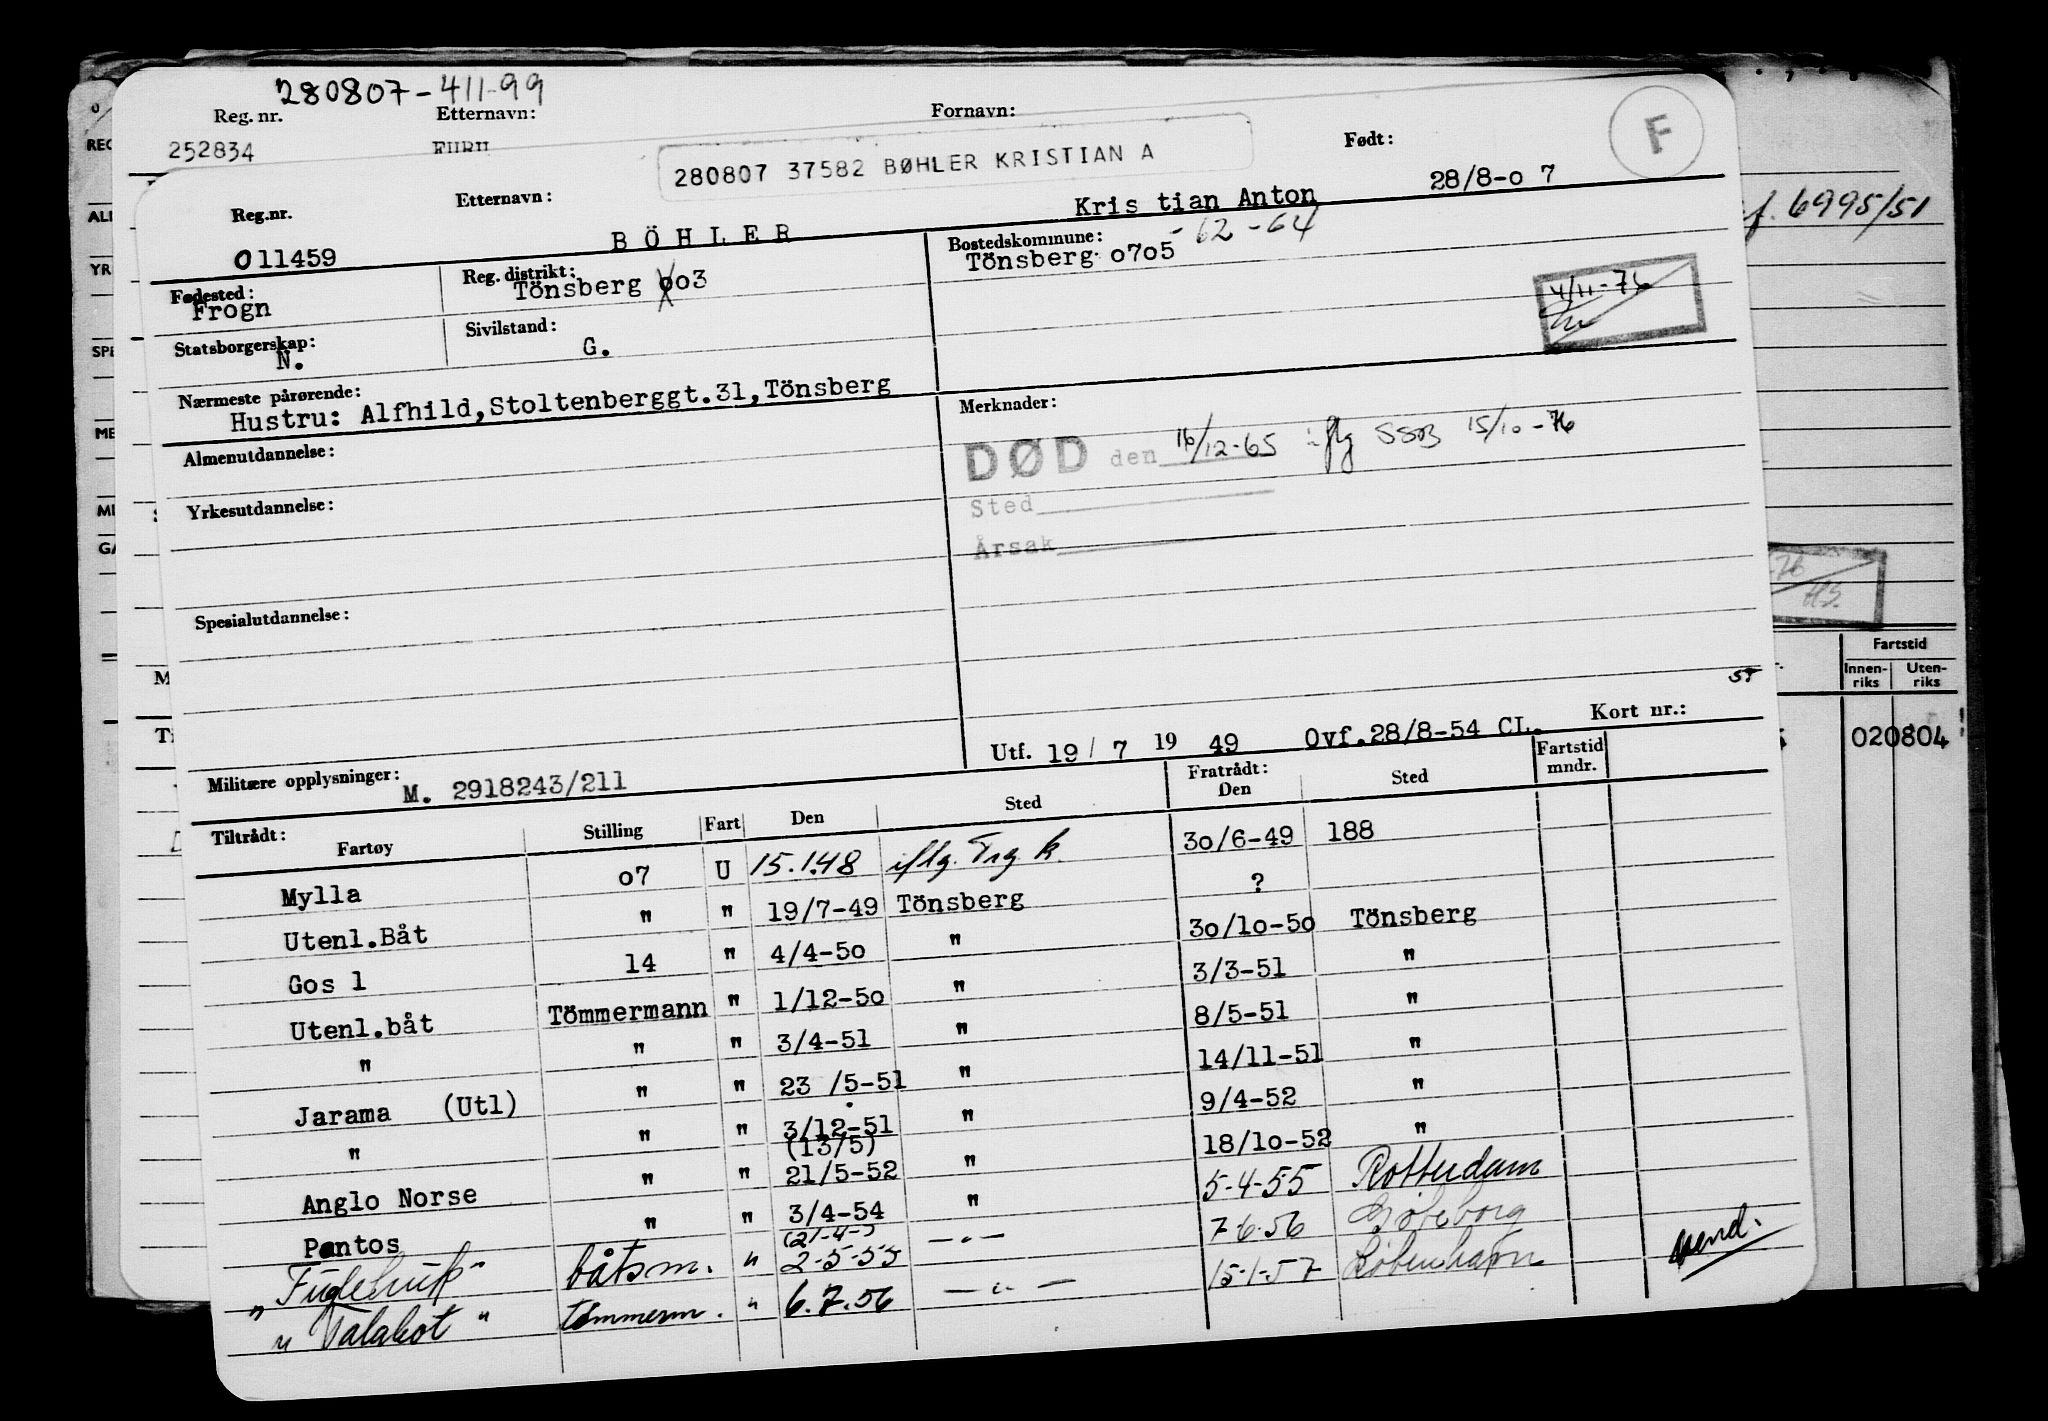 280807-411-99
Reg. nr. Etternavn: Fornavn:
252834 280807 37582 BØHLER KRISTIAN A Født: F
Reg.nr. Etternavn: Kris tian Anton 28/8-o 7
011459 BÖHLER Bostedskommune: -62-64
Fødested: Reg. distrikt: Tönsberg 0705
Frogn Tönsberg 003
Statsborgerskap: Sivilstand: 4/11-76
N. G.
Nærmeste pårørende:
Hustru: Alfhild,Stoltenberggt.31,Tönsberg
Merknader:
Almenutdannelse: DØD den 16/12-65 iflg SSB 15/10-76
Yrkesutdannelse: Sted
Årsak
Spesialutdannelse:
Utf. 19/ 7 19 49 Ovf.28/8-54 CL. Kort nr.:
Militære opplysninger: M. 2918243/211
Tiltrådt: Fratrådt: Fartstid
Fartøy Stilling Fart Den Sted Den Sted mndr.
Mylla 07 U 15.1.48 iflg. Trg k. 30/6-49 188
Utenl.Båt " " 19/7-49 Tönsberg ?
Gos 1 14 " 4/4-50 " 30/10-50 Tönsberg
Utenl.båt Tömmermann " 1/12-50 " 3/3-51 "
" " " 3/4-51 " 8/5-51 "
Jarama (Utl) " " 23 /5-51 " 14/11-51 "
" " " 3/12-51 " 9/4-52 "
(13/5)
Anglo Norse " " 21/5-52 " 18/10-52 "
Pontos " " 3/4-54 " 5-4-55 Rotterdam
" båtsm. " 2-5-55 -"- 7-6-56 Gøteborg
" Talabot " tömmerm. " 6.7.56 -"- 15-1-57 København
vend.
6995/51
Fartstid
Innen-riks Uten-riks
020804